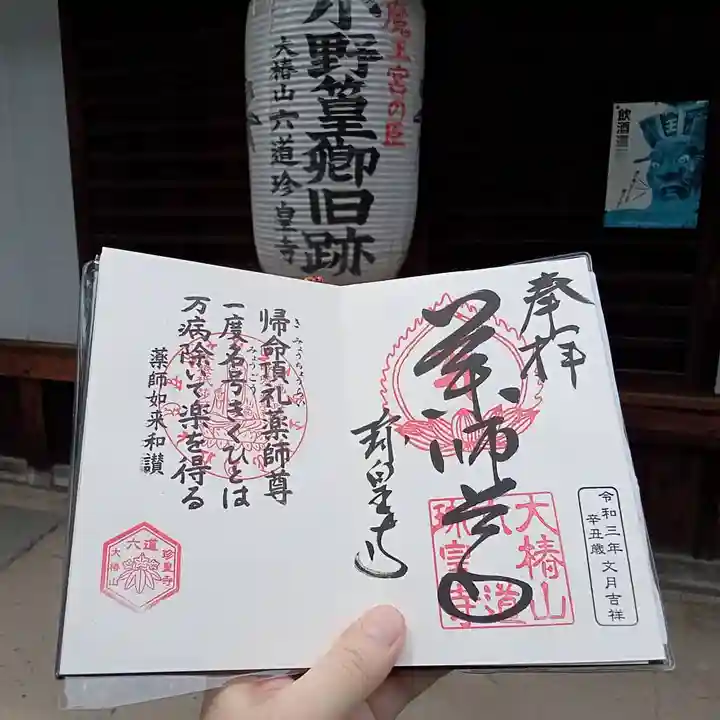 魔王宮の臣
小野篁卿旧跡
大椿山六道珍皇寺
飲酒
王
奉拝
薬師尊
珍皇寺
大椿山
六道
珍皇寺
令和三年文月吉祥
辛丑歳
帰命頂礼薬師尊
一度名号きくひとは
みょうごう
万病除いて楽を得る
薬師如来和讃
六道
珍皇寺
大椿山